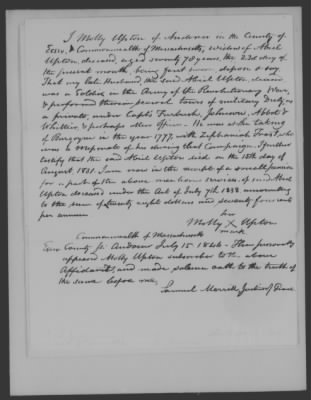 I Molly Upton of Andover in the County of
Essex & Commonwealth of Massachusetts, widow of Abiel
Upton, deceased, aged seventy 78 years, the 23d day of
the present month being first sworn depose & say
That my late Husband, the said Abiel Upton, deceased
was a Soldier in the Army of the Revolutionary War,
& performed therein several tours of military duty as
a private, under Capts Furbush, Johnson, Abbot &
Whittier, & perhaps other officers - He was at the taking
of Burgoyne in the year 1777, with Zephaniah Frost, who
was a corporate of his during that Campaign. I further
certify that the said Abiel Upton died on the 15th day of
August 1831. I am now in the receipt of a small pension
for a part of the above mentioned services of said Abiel
Upton deceased under the Act of July 7th 1838 amounting
to the sum of twenty eight dollars and seventy four cents
per annum
her
Molly X Upton
mark
Commonwealth of Massachusetts
Essex County ss. Andover July 15 1844 - Then personally
appeared Molly Upton subscriber to the above
Affidavit, and made solemn oath to the truth of
the same before me,
Samuel Merrill Justice of Peace